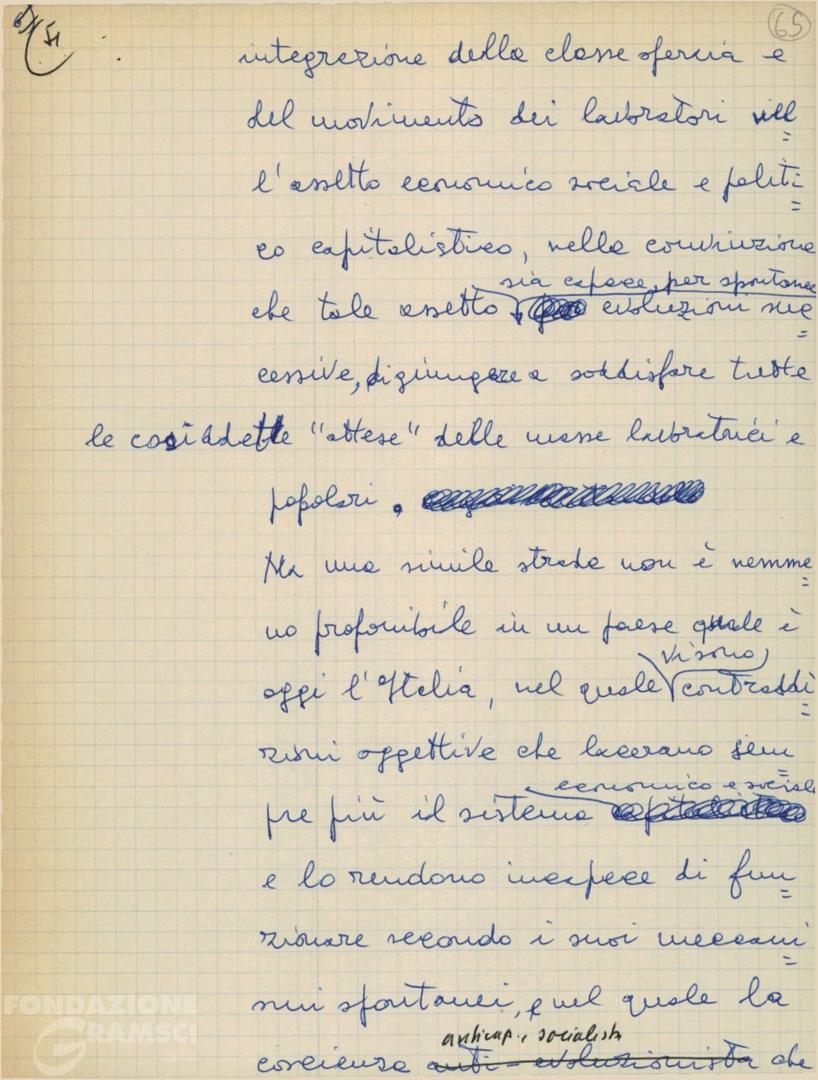 65
integrazione della classe operaia e
del movimento dei lavoratori nell
l'assetto economico sociale e politi=
co capitalistico, nella convinzione
sia capace, per spontanee
che tale assetto evoluzioni suc=
cessive, di giungere a soddisfare tutte
le cosiddette "attese" delle masse lavoratrici e
popolari.
Ma una simile strada non è nemme=
no proponibile in un paese quale è
vi sono
oggi l'Italia, nel quale contraddi=
zioni oggettive che lacerano sem=
economico e sociale
pre più il sistema capitalistico
e lo rendono incapace di fun=
zionare secondo i suoi meccani=
smi spontanei, e nel quale la
anticap. e socialista
coscienza anti-evoluzionista che
FONDAZIONE
GRAMSCI